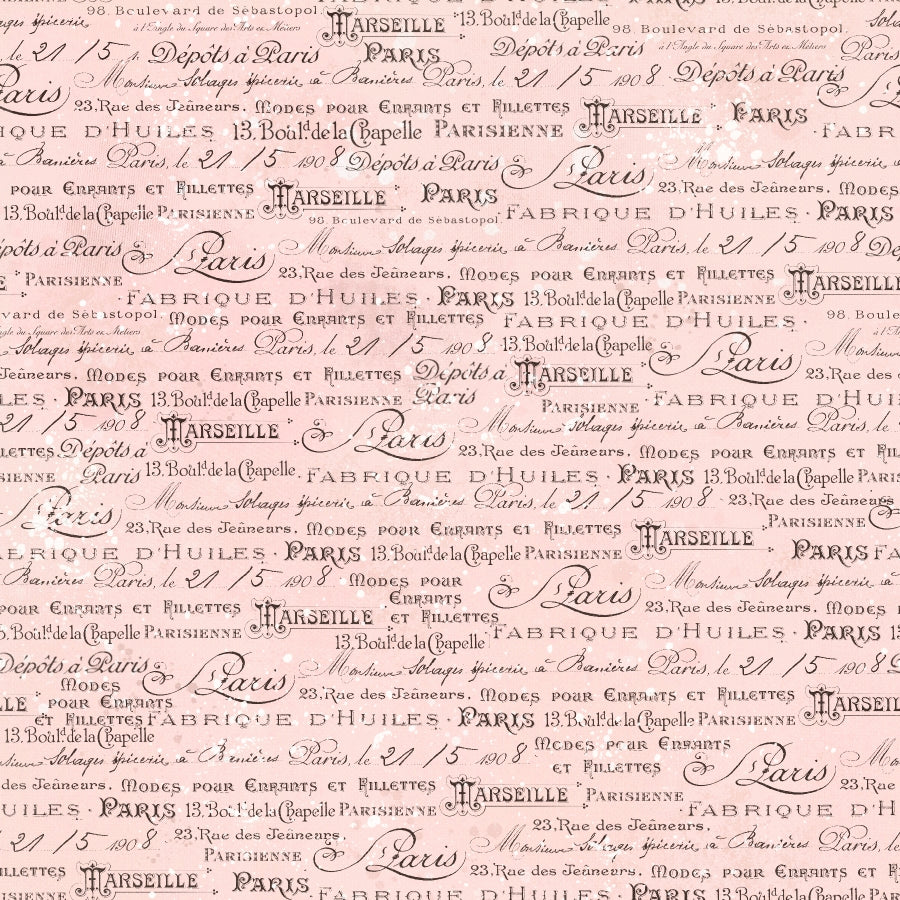 98. Boulevard de Sébastopol. MARSEILLE 13.Boulᵈ.de la Chapelle
épicerie à l'Angle du Square des Arts et Métiers 98. Boulevard de Sébastopol.
, le 21 / 5 Dépôts à Paris PARIS Dépôts à Paris à l'Angle du Square des Arts et Métiers Paris
Monsieur Solages épicerie à Banières Paris, le 21 / 5 1908 Dépôts à Paris
Paris 23, Rue des Jeûneurs. MODES POUR ENFANTS ET FILLETTES MARSEILLE PARIS
D'HUILES 13.Boulᵈ.de la Chapelle PARISIENNE
à Banières Paris, le 21 / 5 1908 Dépôts à Paris Paris Monsieur Solages épicerie à
POUR ENFANTS ET FILLETTES MARSEILLE PARIS 23, Rue des Jeûneurs. MODES
13.Boulᵈ.de la Chapelle PARISIENNE 98. Boulevard de Sébastopol. FABRIQUE D'HUILES · PARIS
Dépôts à Paris Paris Monsieur Solages épicerie à Banières Paris, le 21 / 5 1908
PARISIENNE 23, Rue des Jeûneurs. MODES POUR ENFANTS ET FILLETTES MARSEILLE
· FABRIQUE D'HUILES · PARIS 13.Boulᵈ.de la Chapelle PARISIENNE
de Sébastopol. MODES POUR ENFANTS ET FILLETTES FABRIQUE D'HUILES · 98.
du Square des Arts et Métiers
Solages épicerie à Banières Paris, le 21 / 5 1908 13.Boulᵈ.de la Chapelle Paris
Jeûneurs. MODES POUR ENFANTS ET FILLETTES Dépôts à Paris MARSEILLE 23, Rue des
· PARIS 13.Boulᵈ.de la Chapelle PARISIENNE PARISIENNE · FABRIQUE D'HUILES
21 / 5 1908 MARSEILLE Paris Monsieur Solages épicerie à Banières Paris, le
Dépôts à Paris 23, Rue des Jeûneurs. MODES POUR ENFANTS ET FILLETTES
13.Boulᵈ.de la Chapelle · FABRIQUE D'HUILES · PARIS 13.Boulᵈ.de la Chapelle
Paris Monsieur Solages épicerie à Banières Paris, le 21 / 5 1908 · 23, Rue des Jeûneurs
23, Rue des Jeûneurs. MODES POUR ENFANTS ET FILLETTES MARSEILLE PARISIENNE
FABRIQUE D'HUILES · PARIS 13.Boulᵈ.de la Chapelle PARISIENNE PARIS
Banières Paris, le 21 / 5 1908 MODES POUR ENFANTS ET FILLETTES Paris Monsieur Solages épicerie à
POUR ENFANTS ET FILLETTES MARSEILLE 23, Rue des Jeûneurs. MODES
13.Boulᵈ.de la Chapelle PARISIENNE 13.Boulᵈ.de la Chapelle FABRIQUE D'HUILES · PARIS
Dépôts à Paris Paris Monsieur Solages épicerie à Banières Paris, le 21 / 5 1908
MODES POUR ENFANTS ET FILLETTES 23, Rue des Jeûneurs. MODES POUR ENFANTS ET FILLETTES MARSEILLE
FABRIQUE D'HUILES · PARIS 13.Boulᵈ.de la Chapelle PARISIENNE
13.Boulᵈ.de la Chapelle
Solages épicerie à Banières Paris, le 21 / 5 1908 MODES POUR ENFANTS ET FILLETTES Paris
des Jeûneurs. MODES POUR ENFANTS ET FILLETTES MARSEILLE PARISIENNE 23, Rue
· PARIS 13.Boulᵈ.de la Chapelle PARISIENNE FABRIQUE D'HUILES
21 / 5 1908 23, Rue des Jeûneurs. 23, Rue des Jeûneurs.
PARISIENNE Paris Monsieur Solages épicerie à Banières Paris, le
FILLETTES MARSEILLE PARIS 23, Rue des Jeûneurs. MODES POUR ENFANTS ET
· FABRIQUE D'HUILES · PARIS 13.Boulᵈ.de la Chapelle